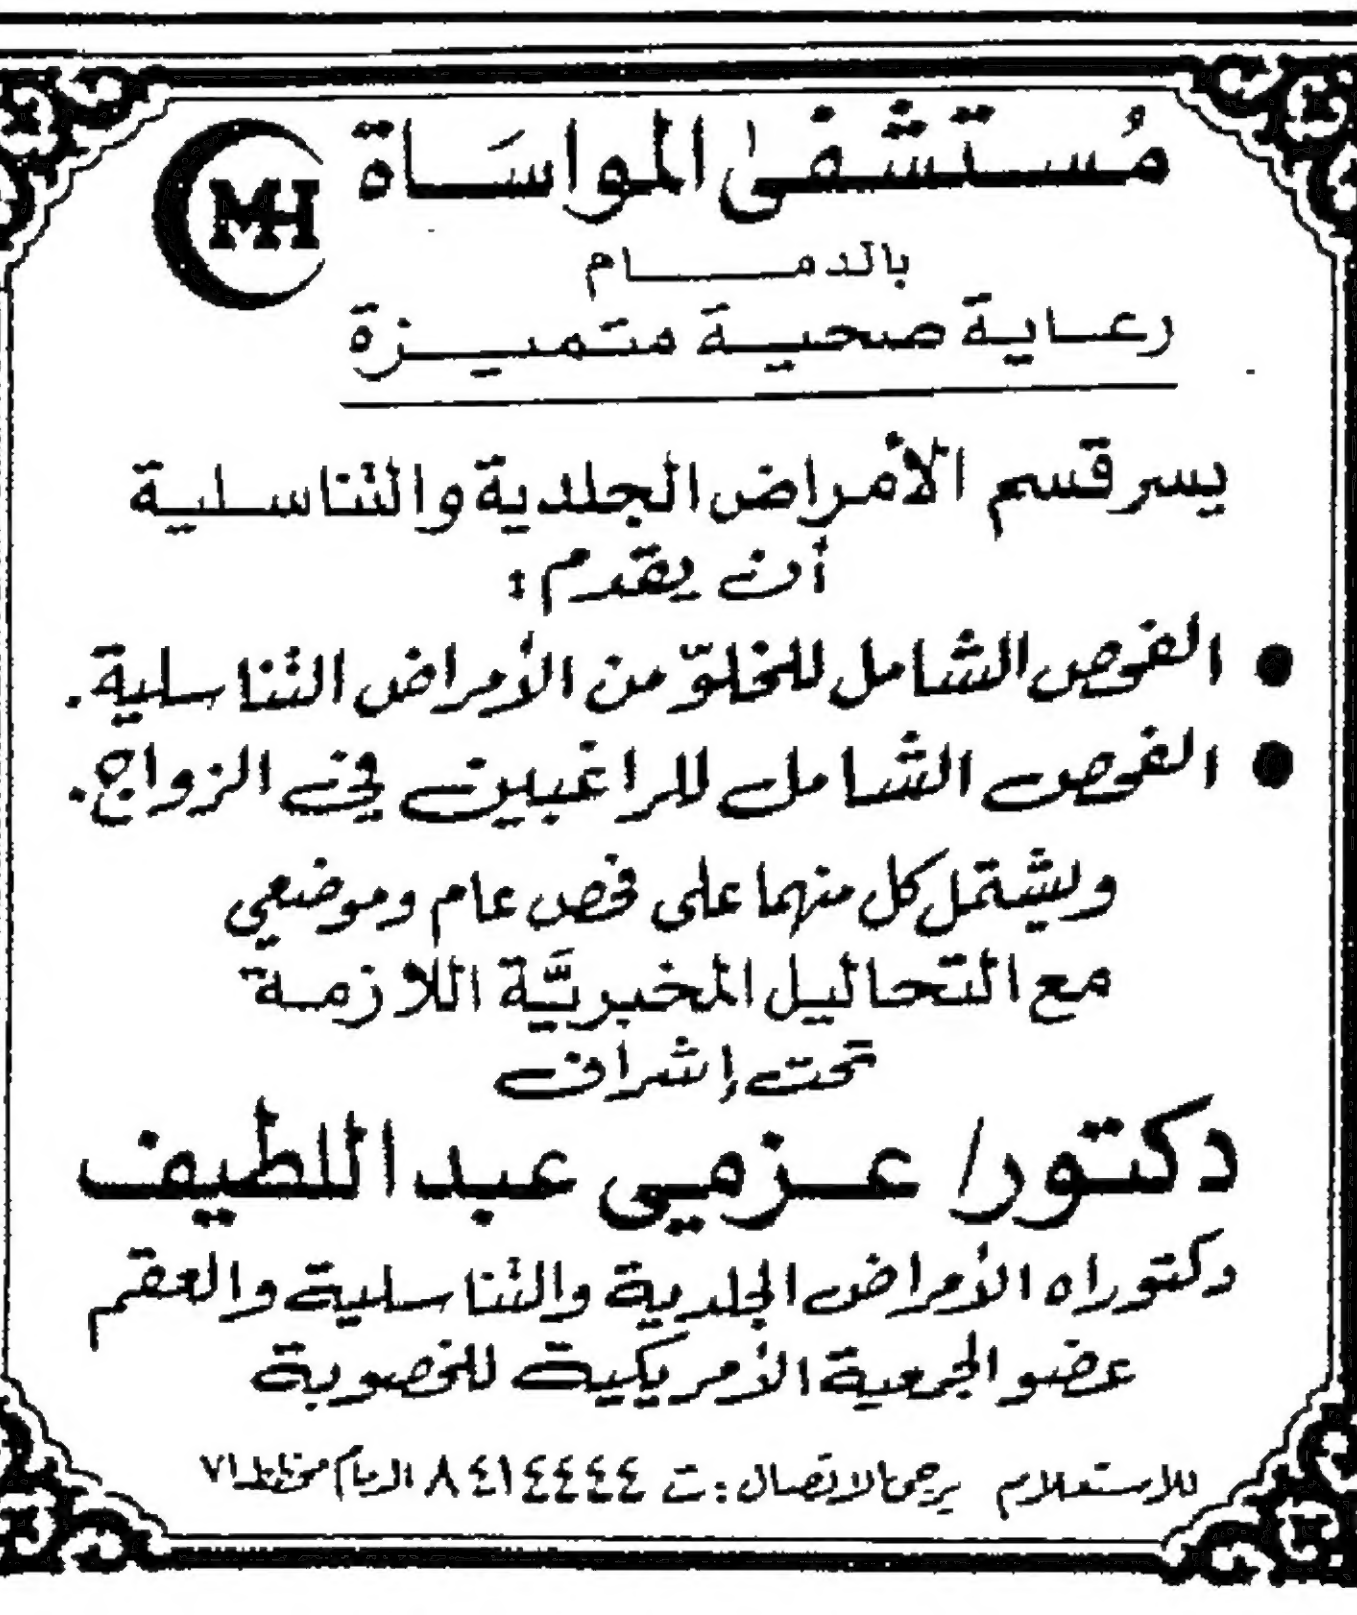 مُستشفىٰ المواسَاة
MH
بالدمام
رعاية صحية متميزة
يسر قسم الأمراض الجلدية والتناسلية
أن يقدم :
● الفحص الشامل للخلوّ من الأمراض التناسلية .
● الفحص الشامل للراغبين في الزواج .
ويشتمل كل منهما على فحص عام وموضعي
مع التحاليل المخبريَّة اللازمة
تحت إشراف
دكتور/ عزمي عبد اللطيف
دكتوراه الأمراض الجلدية والتناسلية والعقم
عضو الجمعية الأمريكية للخصوبة
للاستعلام يرجى الاتصال : ت ٨٤١٤٤٤٤ الدمام مخطط ٧١